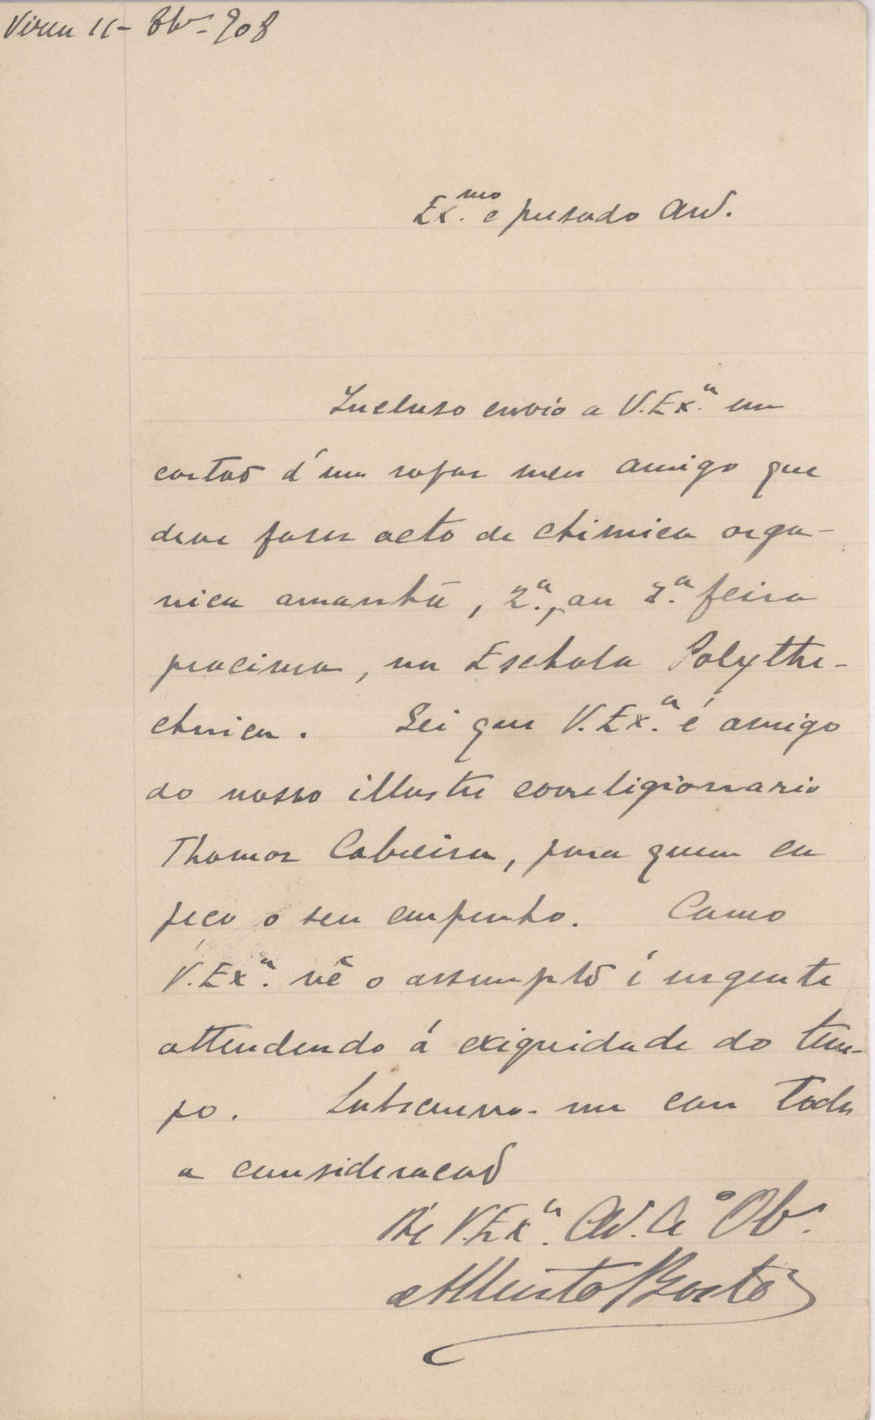 Vizeu 11- 8bro- 908
Ex.mo e presado Am.º
Incluso envio a V. Ex.ª um
cartão d'um rapaz meu amigo que
deve fazer acto de chimica orga-
nica amanhã, 2.ª, ou 3.ª feira
procima, na Eschola Polythe-
chnica. Sei que V. Ex.ª é amigo
do nosso illustre correligionario
Thomaz Cabreira, para quem eu
peço o seu empenho. Como
V. Ex.ª vê o assumpto é urgente
attendendo á exiguidade do tem-
po. Subscrevo-me com toda
a consideração
De V. Ex.ª Am.º A.º Ob.
Alberto Basto